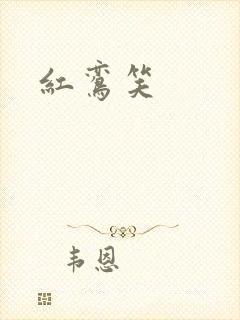 紅鸞笑
韦恩